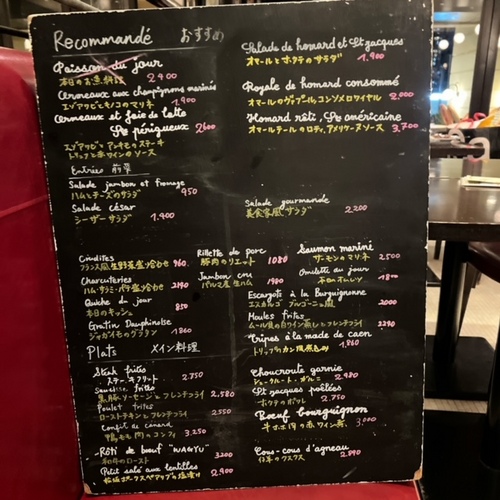 Recommandé おすすめ
Poisson du jour
本日のお魚料理 2400
Ormeaux aux champignons marinés
エゾアワビとキノコのマリネ 1,900
Ormeaux et foie de lotte
Sce périgueux 2600
エゾアワビとアンキモのステーキ
トリュフと赤ワインのソース
Entrées 前菜
Salade jambon et fromage
ハムとチーズのサラダ 950
Salade césar
シーザーサラダ 1,400
Crudités
フランス風生野菜盛り合わせ 960
Charcuteries
ハム・サラミ・パテ盛り合わせ 2190
Quiche du jour
本日のキッシュ 850
Gratin Dauphinoise
ジャガイモのグラタン 1860
Plats メイン料理
Steak frites
ステーキフリット 2,750
Saucisse frites
黒豚ソーセージとフレンチフライ 2,580
Poulet frites
ローストチキンとフレンチフライ 2550
Confit de canard
鴨もも肉のコンフィ 3,250
Rôti de bœuf "WAGYU"
和牛のロースト 3200
Petit salé aux lentilles
2,900
Salade de homard et St jacques
オマールとホタテのサラダ 1,900
Royale de homard consommé
オマールのヴァプール、コンソメロワイヤル 2,000
Homard rôti, Sce américaine
オマールテールのロティ、アメリケーヌソース 3,700
Salade gourmande
美食家風サラダ 2200
Rillette de porc
豚肉のリエット 1080
Jambon cru
パルマ産生ハム 1980
Saumon mariné
サーモンのマリネ 2500
Omelette du jour
本日のオムレツ 1800
Escargots à la Bourguignonne
エスカルゴ ブルゴーニュ風 2000
Moules frites
ムール貝の白ワイン蒸しとフレンチフライ 2290
Tripes à la mode de caen
トリップのカン風煮込み 1,860
Choucroute garnie
シュークルート・ガルニ 2980
St jacques poêlées
ホタテのポワレ 2.750
Bœuf bourguignon
牛ホホ肉の赤ワイン煮 3,000
Cous-cous d'agneau
仔羊のクスクス 2,890